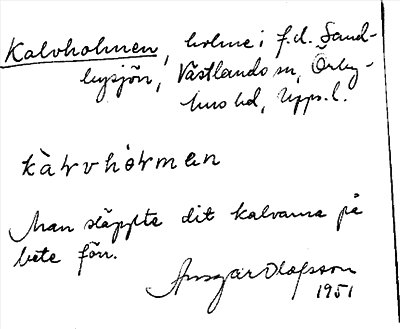 Kalvholmen, holme i f.d. Sand-
bysjön, Västlands sn, Örby-
hus hd, Upps. l.
kàɫvhòɫmen
Man släppte dit kalvarna på
bete förr.
Ansgar Olofsson
1951